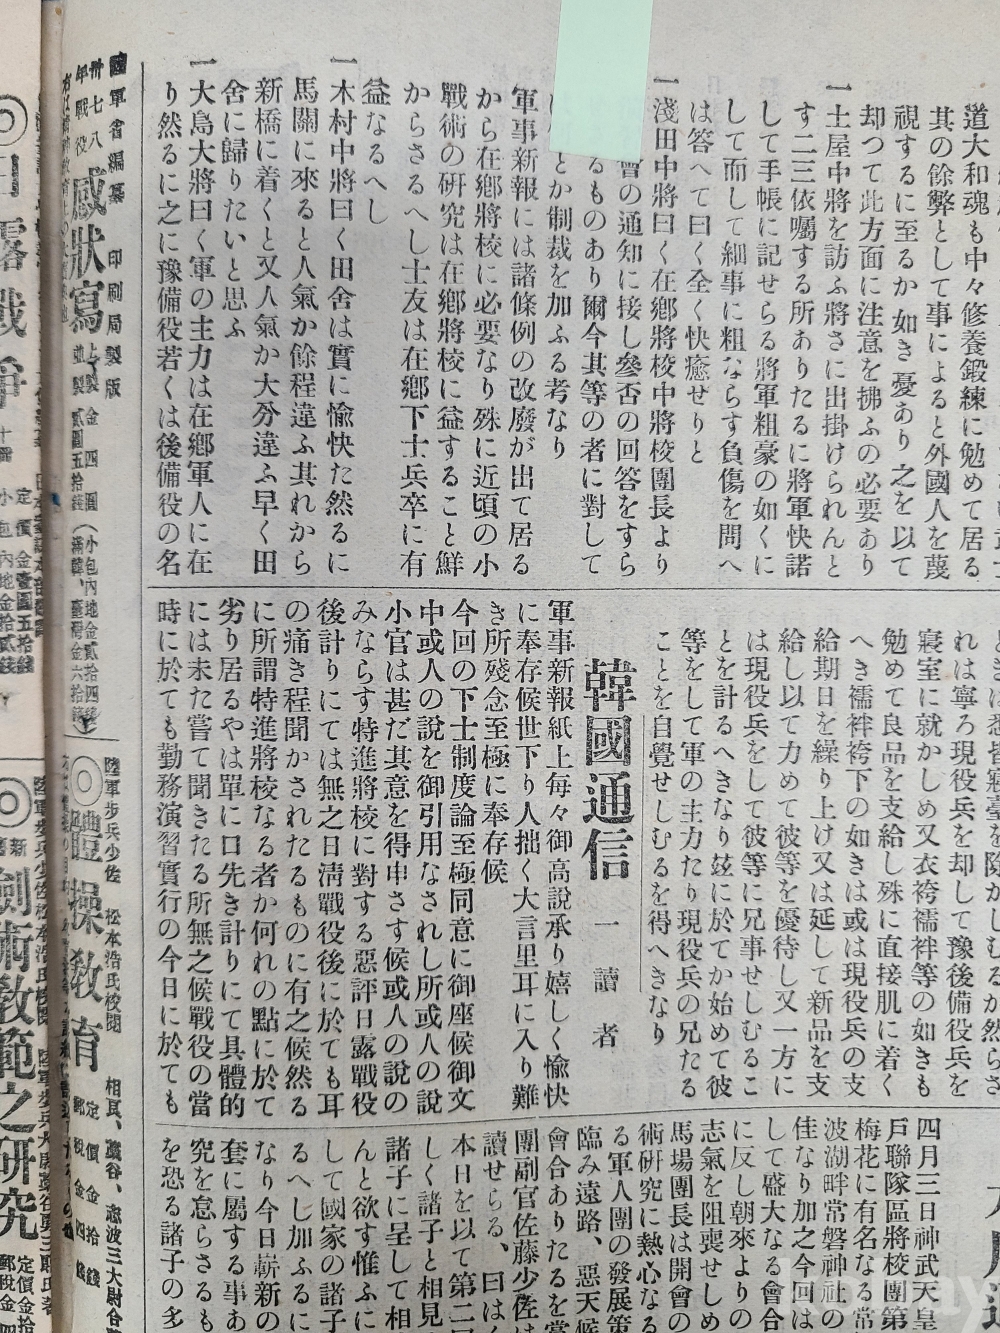 道大和魂も中々修養鍛練に勉めて居る
其の餘弊として事によると外國人を蔑
視するに至るか如き憂あり之を以て
却つて此方面に注意を拂ふの必要あり
一土屋中將を訪ふ將さに出掛けられんと
す二三依囑する所ありたるに將軍快諾
して手帳に記せらる將軍粗豪の如くに
して而して細事に粗ならす負傷を問へ
は答へて曰く全く快癒せりと
一淺田中將曰く在鄕將校中將校團長より
會の通知に接し參否の回答をすら
るものあり爾今其等の者に對して
とか制裁を加ふる考なり
軍事新報には諸條例の改廢が出て居る
から在鄕將校に必要なり殊に近頃の小
戰術の硏究は在鄕將校に益すること鮮
からさるへし士友は在鄕下士兵卒に有
益なるへし
一木村中將曰く田舍は實に愉快た然るに
馬關に來ると人氣か餘程違ふ其れから
新橋に着くと又人氣か大分違ふ早く田
舍に歸りたいと思ふ
一大島大將曰く軍の主力は在鄕軍人に在
り然るに之に豫備役若くは後備役の名
れは寧ろ現役兵を却して豫後備役兵を
寢室に就かしめ又衣袴襦袢等の如きも
勉めて良品を支給し殊に直接肌に着く
へき襦袢袴下の如きは或は現役兵の支
給期日を繰り上け又は延して新品を支
給し以て力めて彼等を優待し又一方に
は現役兵をして彼等に兄事せしむるこ
とを計るへきなり玆に於てか始めて彼
等をして軍の主力たり現役兵の兄たる
ことを自覺せしむるを得へきなり
韓國通信
一讀者
軍事新報紙上每々御高說承り嬉しく愉快
に奉存候世下り人拙く大言里耳に入り難
き所殘念至極に奉存候
今回の下士制度論至極同意に御座候御文
中或人の說を御引用なされし所或人の說
小官は甚だ其意を得申さす候或人の說の
みならす特進將校に對する惡評日露戰役
後計りにては無之日淸戰役後に於ても耳
の痛き程聞かされたるものに有之候然る
に所謂特進將校なる者か何れの點に於て
劣り居るやは單に口先き計りにて具體的
には未た嘗て聞きたる所無之候戰役の當
時に於ても勤務演習實行の今日に於ても
四月三日神武天皇
戶聯隊區將校團第
梅花に有名なる常
波湖畔常磐神社の
佳なり加之今回は
して盛大なる會合
に反し朝來よりの
志氣を阻喪せしめ
馬場團長は開會の
術硏究に熱心なる
る軍人團の發展策
臨み遠路、惡天候
會合ありたるを當
團副官佐藤少佐は
讀せらる、曰はく
本日を以て第二回
しく諸子と相見
諸子に呈して相
んと欲す惟ふに
して國家の諸子
るへし加ふるに
なり今日嶄新の
套に屬する事あ
究を怠らさるも
を恐る諸子の多
陸軍省編纂 印刷局製版
卅七八年戰役
感狀寫
陸軍步兵少佐 松本浩氏校閱
體操敎育
定價金拾錢
郵稅金四錢
日露戰爭
新
劍術敎範之硏究